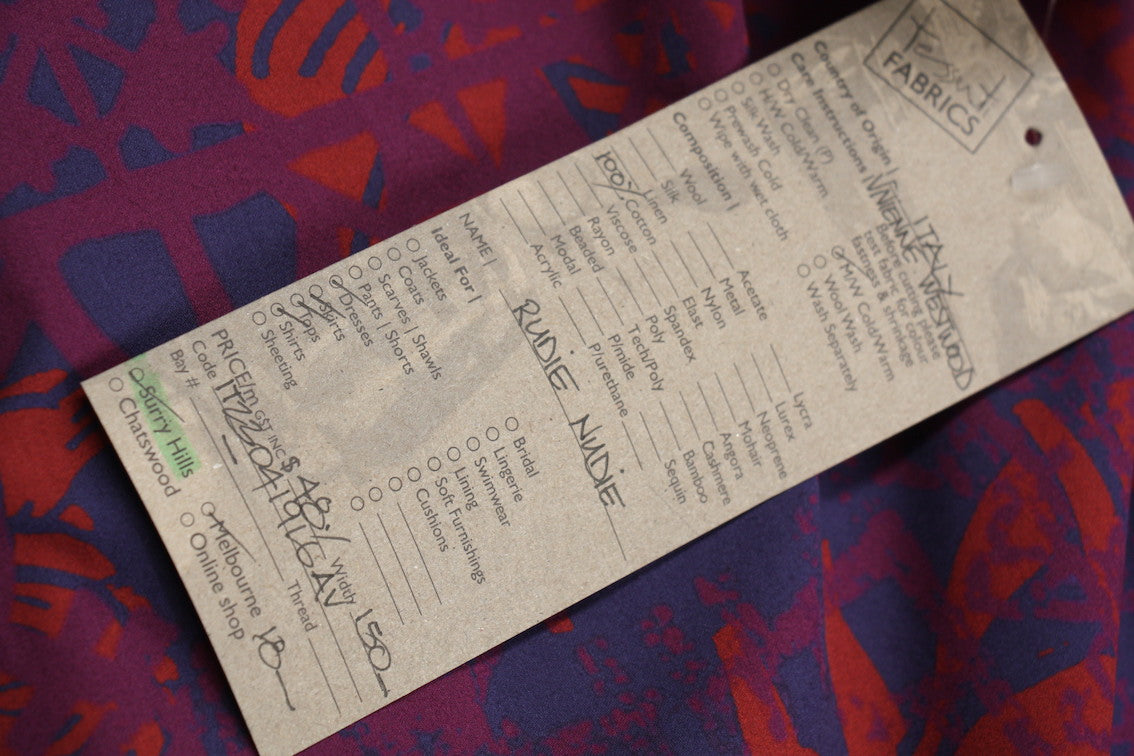 Tessuti
FABRICS
Country of Origin | ITALY
VIVIENNE WESTWOOD
Care Instructions |
Before cutting please
test fabric for colour
fastness & shrinkage
Dry Clean (P)
H/W Cold/Warm
Silk Wash
Prewash Cold
Wipe with wet cloth
M/W Cold/Warm
Wool Wash
Wash Separately
Composition |
Wool
Silk
Linen
100% Cotton
Viscose
Rayon
Beaded
Modal
Acrylic
Acetate
Metal
Nylon
Elast
Spandex
Poly
Tech/Poly
P/mide
P/urethane
Lycra
Lurex
Neoprene
Mohair
Angora
Cashmere
Bamboo
Sequin
NAME | RUDIE NUDIE
Ideal For |
Jackets
Coats
Scarves | Shawls
Pants | Shorts
Dresses
Skirts
Tops
Shirts
Sheeting
Bridal
Lingerie
Swimwear
Lining
Soft Furnishings
Cushions
PRICE/m GST INC $ 48/ Width 150
Code
Bay # Thread
Surry Hills
Chatswood
Melbourne 18
Online shop